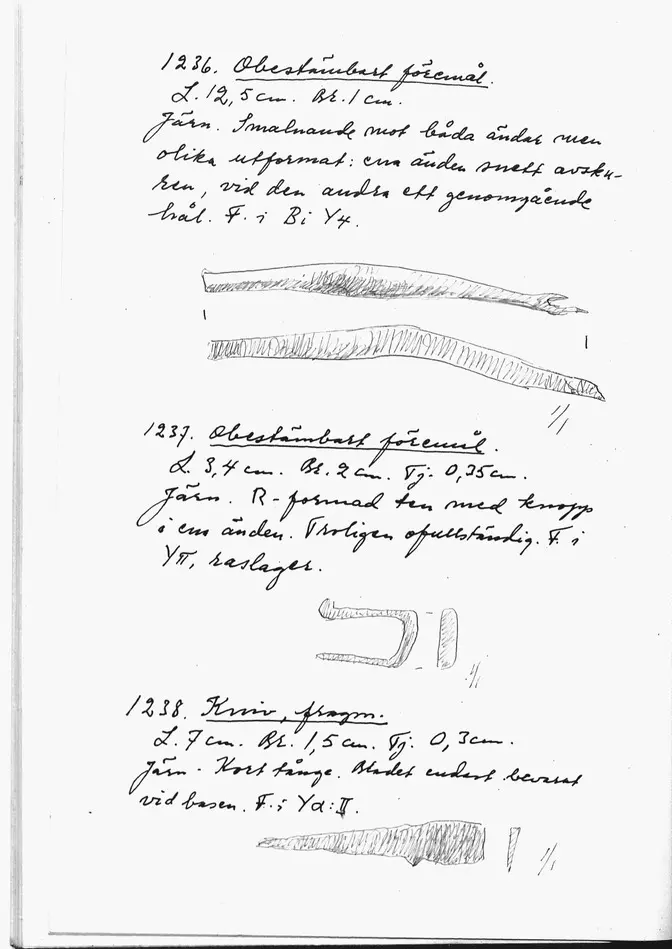 1236. Obestämbart föremål.
L. 12,5 cm. Br. 1 cm.
Järn. Smalnande mot båda ändar men
olika utformat: ena änden snett avsku-
ren, vid den andra ett genomgående
hål. F. i Bi Y4.
1/1
1237. Obestämbart föremål.
L. 3,4 cm. Br. 2 cm. Tj. 0,35 cm.
Järn. R-formad ten med knopp
i ena änden. Troligen ofullständig. F. i
Yπ, raslager.
1/1
1238. Kniv, fragm.
L. 7 cm. Br. 1,5 cm. Tj. 0,3 cm.
Järn. Kort tånge. Bladet endast bevarat
vid basen. F. i Yα:II.
1/1